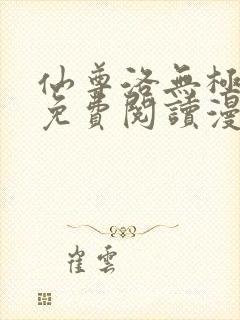 仙尊洛無極
免費閱讀漫
崔雲